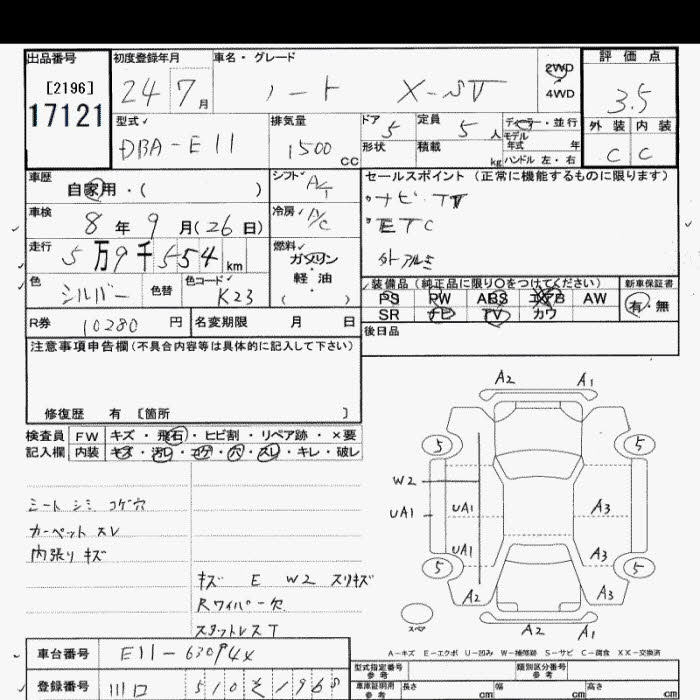 出品番号 初度登録年月 車名・グレード 評価点
[2196] 24 7月 ノート X-SV 2WD 4WD 3.5
17121
型式 DBA-E11 排気量 1500 cc ドア 5 定員 5人 ディーラー・並行 外装 内装
形状 積載 kg モデル年式 年 C C
ハンドル 左・右
車歴 自家用・( ) シフト A/T セールスポイント(正常に機能するものに限ります)
車検 8年 9月(26日) 冷房 A/C ナビ・TV
ETC
走行 5万9千554km 燃料 ガソリン・軽油( ) 外アルミ
色 シルバー 色替 色コード K23 装備品(純正品に限り○をつけてください) 新車保証書
PS PW ABS エアB AW 有・無
R券 10280円 名変期限 月 日 SR ナビ TV カワ
注意事項申告欄(不具合内容等は具体的に記入して下さい) 後日品
修復歴 有 〔箇所 〕
検査員 FW キズ・飛石・ヒビ割・リペア跡・×要
記入欄 内装 キズ・汚レ・コゲ・穴・スレ・キレ・破レ
A2 A1
5 5
W2
UA1 UA1 A3
UA1 A3
5 5
A2 A3
スペア A2 A1
シート シミ コゲ穴
カーペット スレ
内張り キズ
キズ E W2 スリキズ
Rワイパー欠
スタットレスT
A-キズ E-エクボ U-凹み W-補修跡 S-サビ C-腐食 XX-交換済
車台番号 E11-63094X
型式指定番号 参考 類別区分番号 参考
登録番号 川口 510 そ 1968
車庫証明用 参考 長さ cm 幅 cm 高さ cm